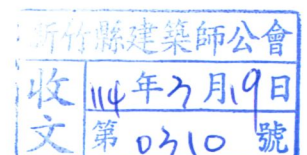 新竹縣建築師公會
收文
114年3月19日
第0310號